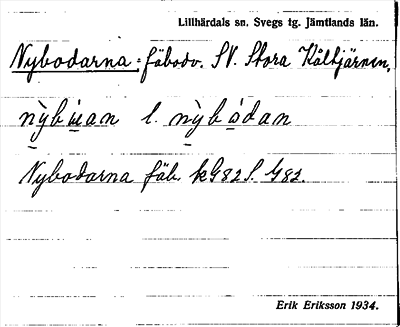 Lillhärdals sn. Svegs tg. Jämtlands län.
Nybodarna: fäbodv. SV. Stora Kältjärnen.
nỳbu̇an l. nỳbȧdan
Nybodarna fäb. kG82 S. G82.
Erik Eriksson 1934.